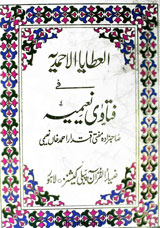 العطایا الاحمدیہ
فی
فتاوی نعیمیہ
صاحبزادہ مفتی اقتدار احمد خان نعیمی
ضیاء القرآن پبلی کیشنز ۔ لاہور